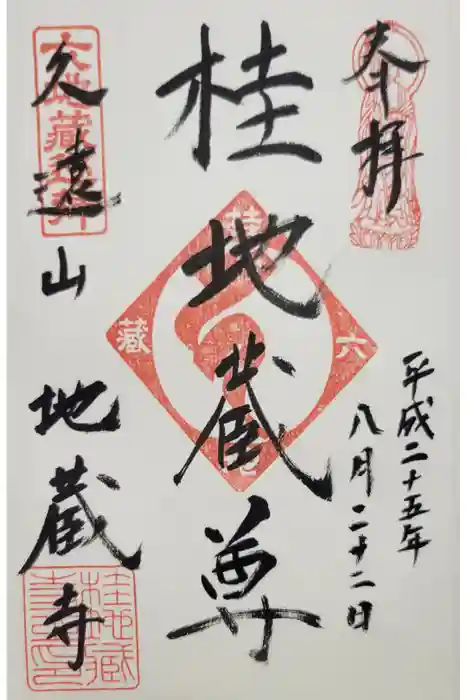 奉拝
平成二十五年
八月二十二日
桂地蔵尊
久遠山
地蔵寺
六地蔵
桂地蔵
寺印